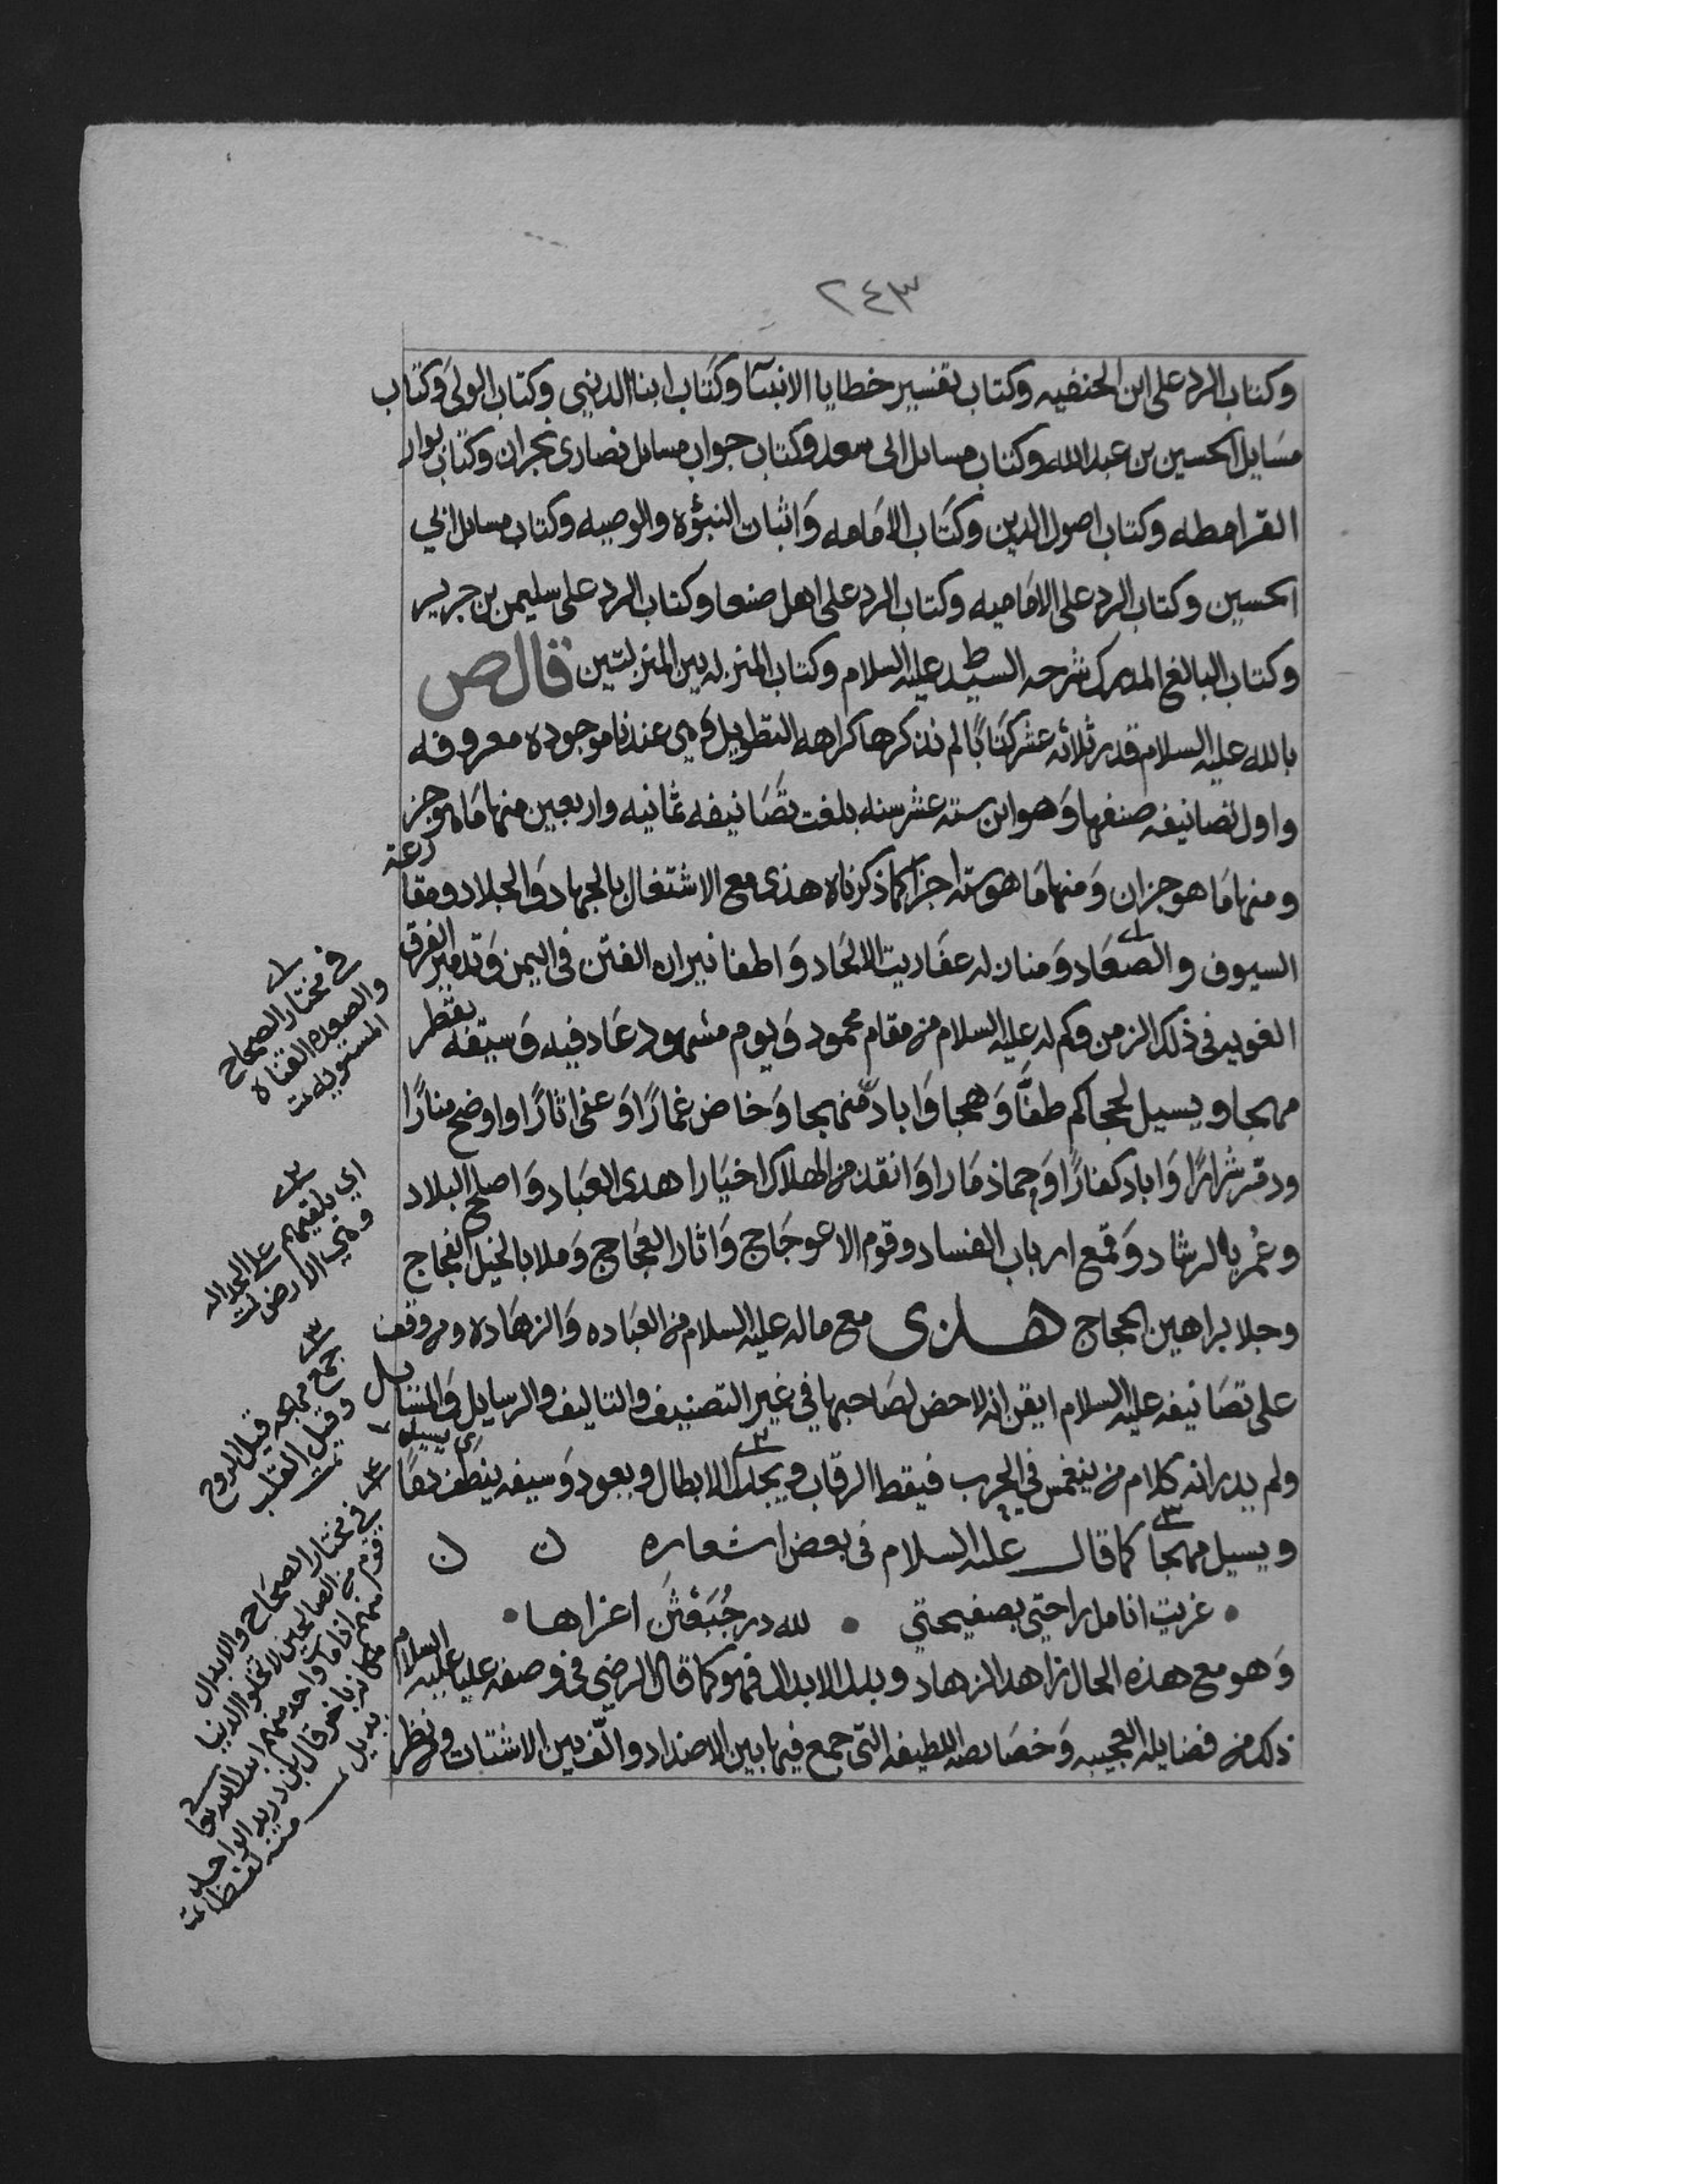 ٢٤٣
وكتاب الرد على ابن الحنفيه وكتاب تفسير خطايا الانبيآ وكتاب ابنا الدنيى وكتاب الولى وكتاب
مسايل الحسين بن عبدالله وكتاب مسايل الى سعد وكتاب جواب مسايل نصارى نجران وكتاب بوار
القرامطه وكتاب اصول الدين وكتاب الامامه وَاثبات النبؤه والوصيه وكتاب مسايل ابي
الحسين وكتاب الرد على الاماميه وكتاب الرد على اهل صنعا وكتاب الرد على سليمن بن جرير
وكتاب البالغ المدرك شرحه السيد ط عليه السلام وكتاب المنزله بين المنزلتين قال ص
بالله عليه السلام قدر ثلاثه عشر كتابًا لم نذكرها كراهه التطويل وَهي عندنا موجوده معروفه
واول تصانيفه صنفها وَهو ابن سته عشر سنه بلغت تصَانيفه ثمانيه واربعين منها مَا هو جز
ومنها مَا هو جزان وَمنها مَا هو سته اجزا كما ذكرناه هذى مع الاشتغال بالجهاد وَالجلاد ومقارعة
السيوف والصعَاد وَمنازله عفَاريت الالحَاد وَاطفا نيران الفتن فى اليمن وَتدمير الفرق
الغويه فى ذلك الزمن وكم له عليه السلام من مقام محمود وَيوم مشهود عَاد فيه وَسيفه يقطر
مهجا ويسيل لججا كم طغَّا وَهمجا وَاباد منهجا وَخاض غمارًا وَعفى اثارًا واوضح منارًا
ودمر شرارًا وَاباد كفارًا وَحما ذمَارا وَانقذ من الهلاك اخيَارا هدى العباد وَاصلح البلاد
وعُمر به الرشاد وَقمع ارباب الفساد وقوم الاعوجَاج وَاثار العجَاج وَملا بالخيل الفجاج
وجلا براهين الحجاج هذى مع ماله عليه السلام من العباده وَالزهَاده ومن وقف
على تصَانيفه عليه السلام ايقن انه لا حض لصَاحبها في غير التصنيف والتاليف والرسايل وَالمسايل
ولم يدر انه كلام من ينغمس في الحرب فيقط الرقاب ويجدل الابطال ويعود وَسيفه ينطف دمًا اى يسيل
ويسيل مهجا كما قال عليه السلام فى بعض اشعاره ن ن
• غريت انامل راحتي بصفيحتي • لله در خُبَعْثَن اغراها •
وَهو مع هذه الحال زاهد الزهاد وبدل الابدال فهو كما قال الرضي في وصفه عليا عليه السلام
ذلك من فضايله العجيبه وَخصَايصه اللطيفه التى جمع فيها بين الاضداد والَّف بين الاشتات ومن نظر
١
في مختار الصحاح
والصعده القناه
المستويه تمت
٢
اي يلقيهم على الجداله
وهي الارض تمت
٣
جمع مهجه قيل الروح
وقيل القلب تمت
٤ في مختار الصحاح والابدال
قوم من الصالحين لا تخلو الدنيا
منهم اذا مات واحد منهم ابدل الله تعا
مكانه باخر قال ابن دريد الواحد
بديل منه لفظا تمت